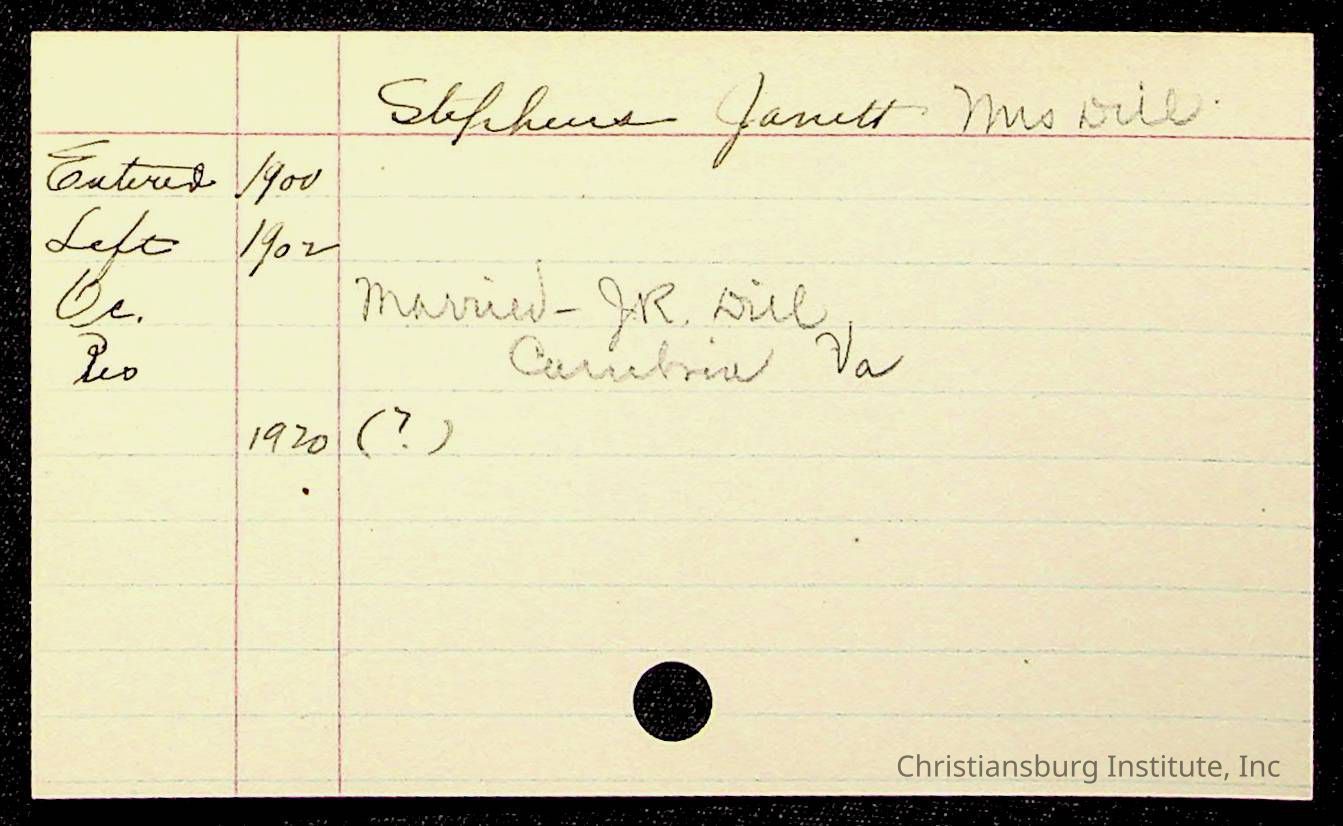 Stephens Janett Mrs Dill
Entered 1900
Left 1902
Oc. Married - J.R. Dill
Res Cambria Va
1920 (?)
Christiansburg Institute, Inc